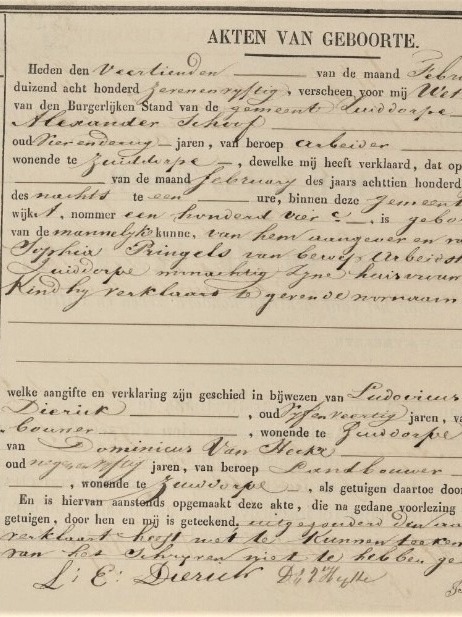 AKTEN VAN GEBOORTE.
Heden den Veertienden van de maand Febru
duizend acht honderd zevenenvyftig, verscheen voor mij Wet
van den Burgerlijken Stand van de gemeente Zuiddorpe
Alexander
oud Vierendertig jaren, van beroep Arbeider
wonende te Zuiddorpe, dewelke mij heeft verklaard, dat op
van de maand february des jaars achttien honderd
des nachts te een ure, binnen deze gemeente
wijk, nommer een honderd vier c, is gebo
van de mannelijke kunne, van hem aangever en
Sophia Pringels van beroep Arbeidst
Zuiddorpe woonachtig zyne huisvrouw
Kind hy verklaart te gevende voornaam
welke aangifte en verklaring zijn geschied in bijwezen van Ludovicus
Dierick, oud Vyfenveertig jaren, va
bouwer, wonende te Zuiddorpe
van Dominicus Van Hecke
oud negenenvyftig jaren, van beroep Landbouwer
, wonende te Zuiddorpe, als getuigen daartoe door
En is hiervan aanstonds opgemaakt deze akte, die na gedane voorlezing
getuigen, door hen en mij is geteekend, uitgezonderd den
verklaart heeft niet te kunnen teeken
van het Schryven niet te hebben ge
L: E: Dierick